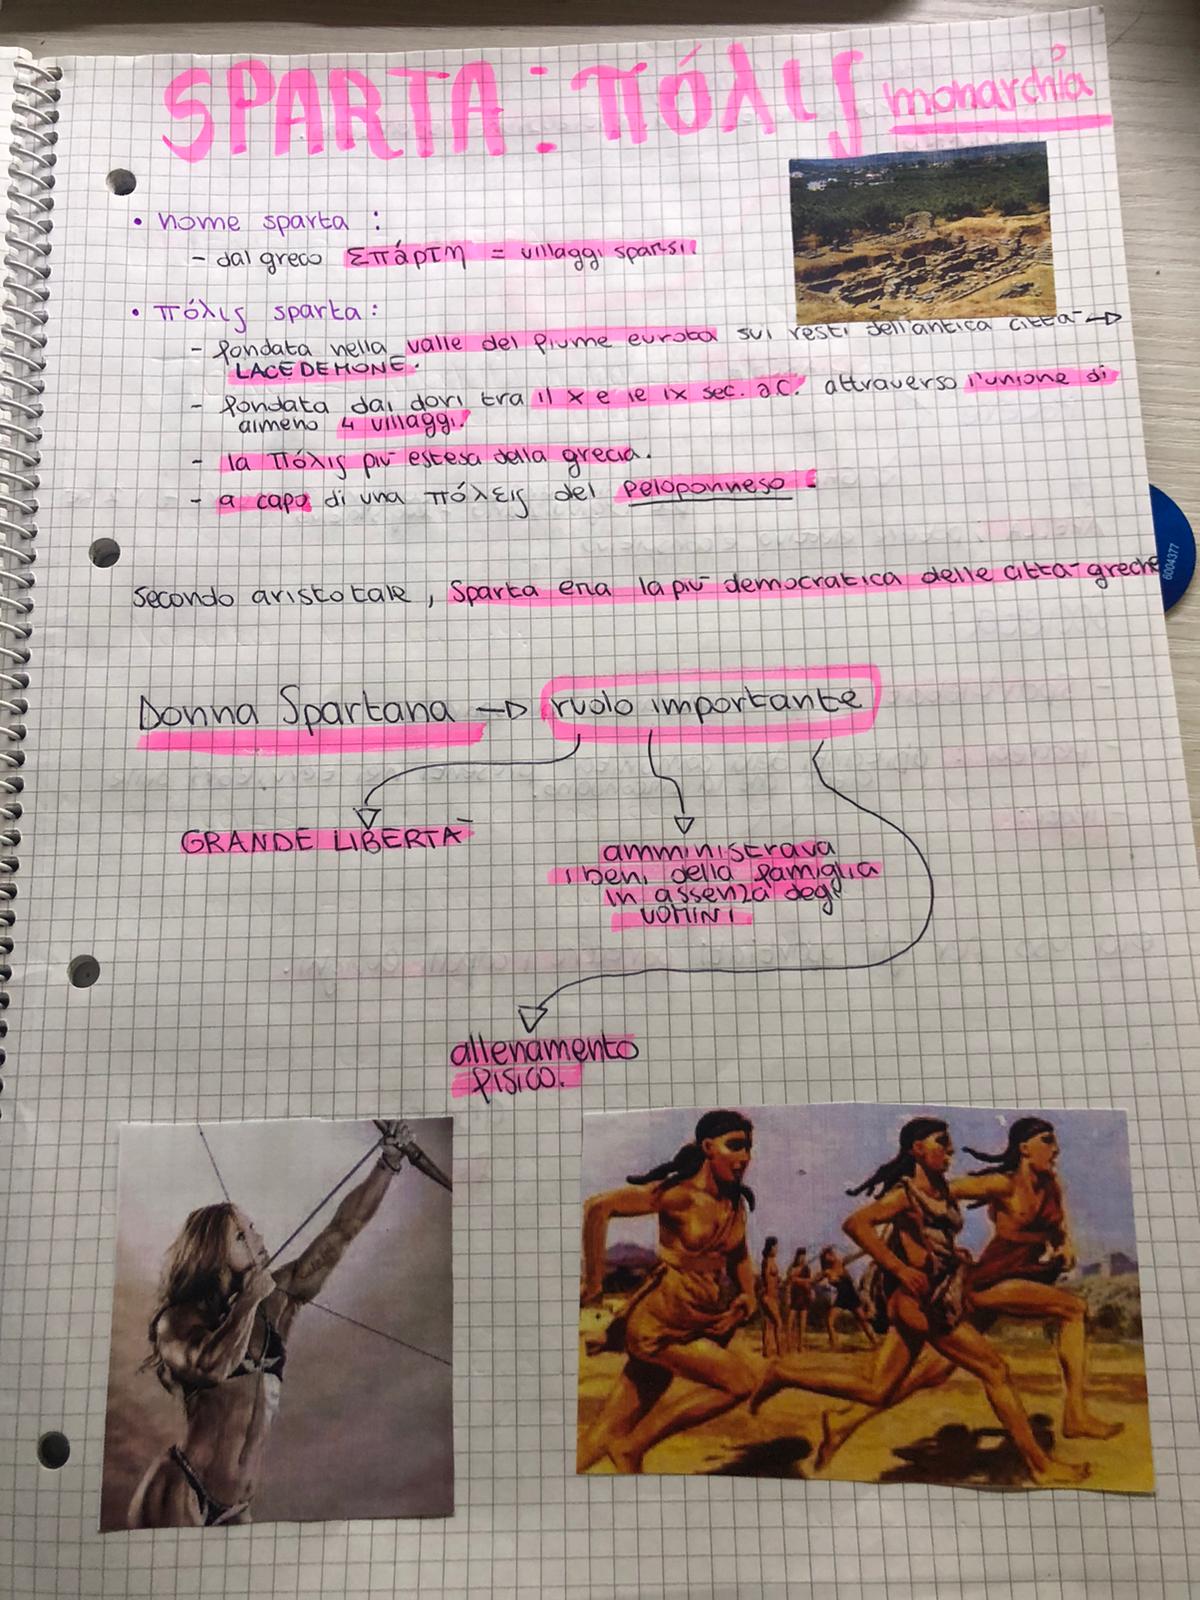 SPARTA: πόλις monarchia
• nome sparta :
- dal greco Σπάρτη = villaggi sparsi
• πόλις sparta:
- fondata nella valle del fiume eurota sui resti dell'antica città
LACEDEMONE.
- fondata dai dori tra il X e le IX sec. a.C. attraverso l'unione di
almeno 4 villaggi.
- la πόλις più estesa della grecia.
- a capo di una πόλεις del Peloponneso.
secondo aristotale, Sparta era la più democratica delle città greche
Donna Spartana → ruolo importante
GRANDE LIBERTÀ
amministrava
i beni della famiglia
in assenza degli
UOMINI
allenamento
fisico.
6004377